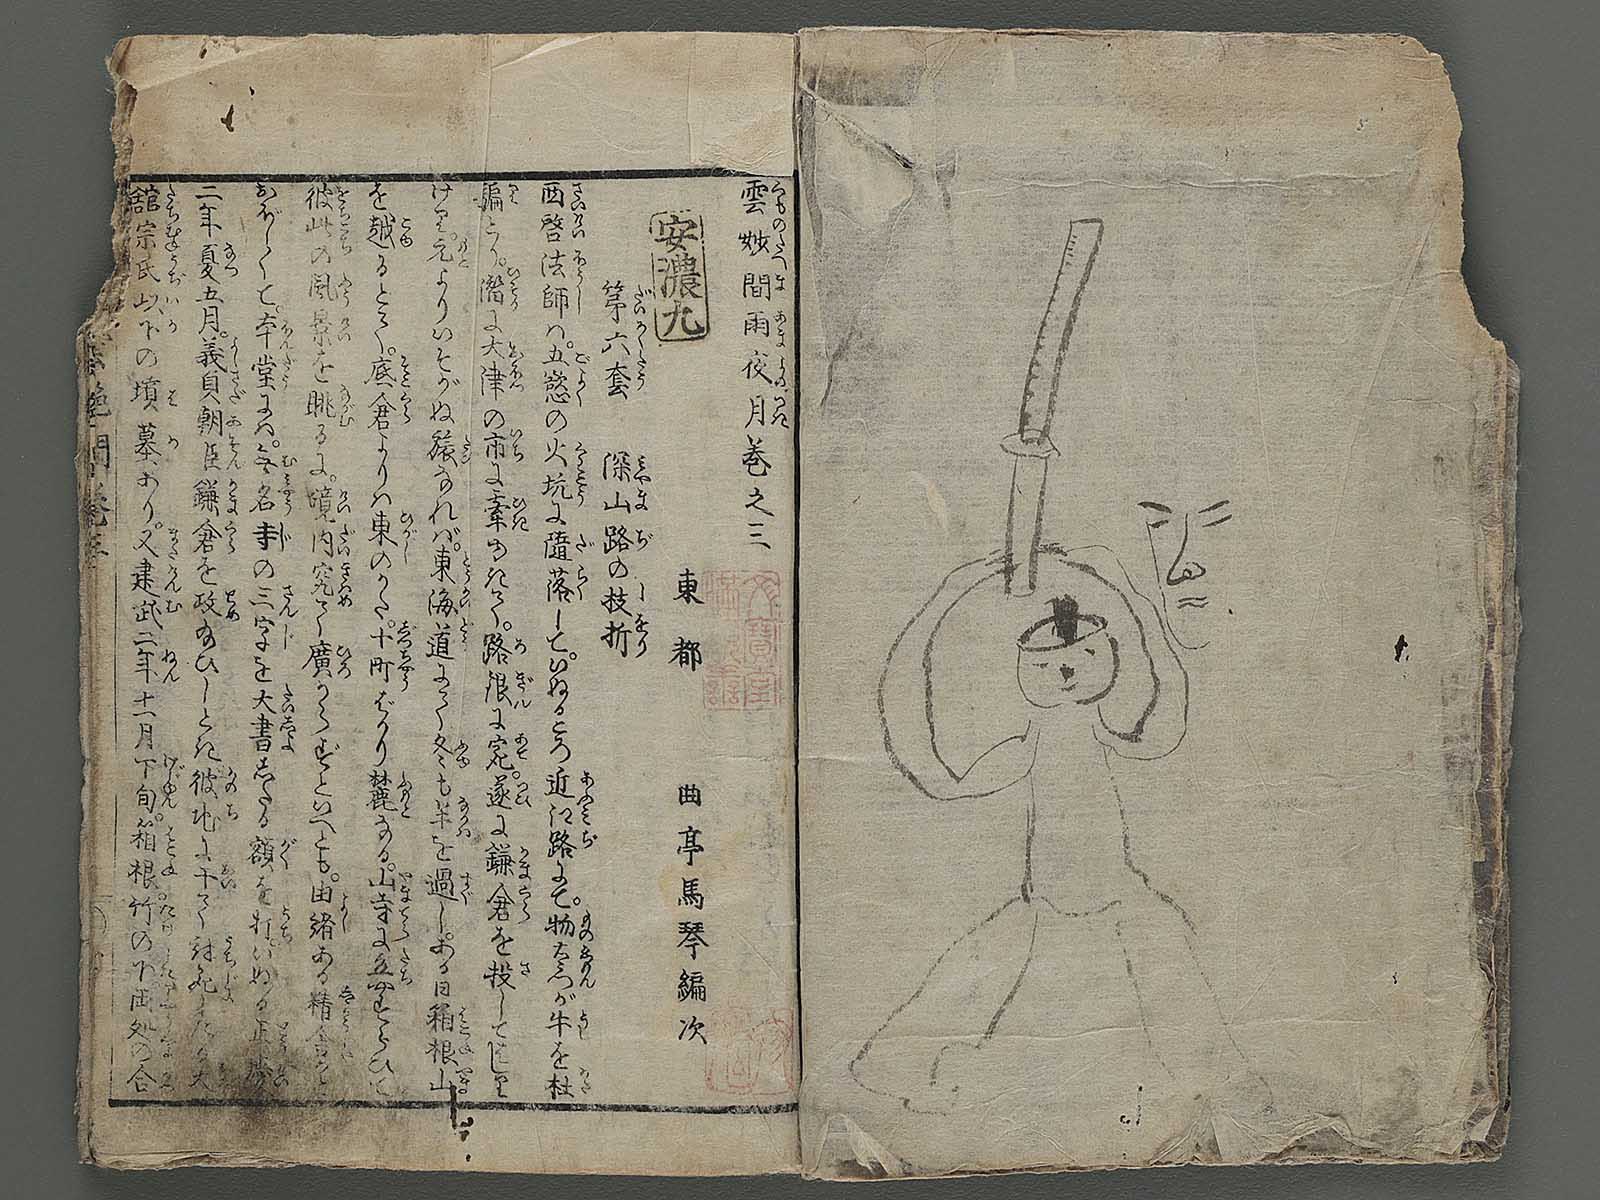 雲妙間雨夜月巻之三
東都 曲亭馬琴編次
安濃九
第六套 深山路の枝折
西啓法師ハ。五慾の火坑に墮落して。いぬるころ近江路にて。物だちが牛を杜
騙とり。潜に大津の市に牽ゆきて。路銀に宛。遂に鎌倉を投して
けり。元よりいそがぬ旅なれバ。東海道にて冬も半を過し。ある日箱根山
を越るとて。底倉よりハ東のかた。十町ばかり麓なる。山寺に立やすらひて
彼此の風景を眺るに。境内究て廣からずといへども。由緒ある精舎と
おぼしくて。本堂にハ。無名寺の三字を大書したる額を打。いぬる正慶
二年夏五月。義貞朝臣鎌倉を攻給ひしとき。彼地にて討死したる大
舘宗氏以下の墳墓あり。又建武二年十一月下旬。箱根竹の下両処の合